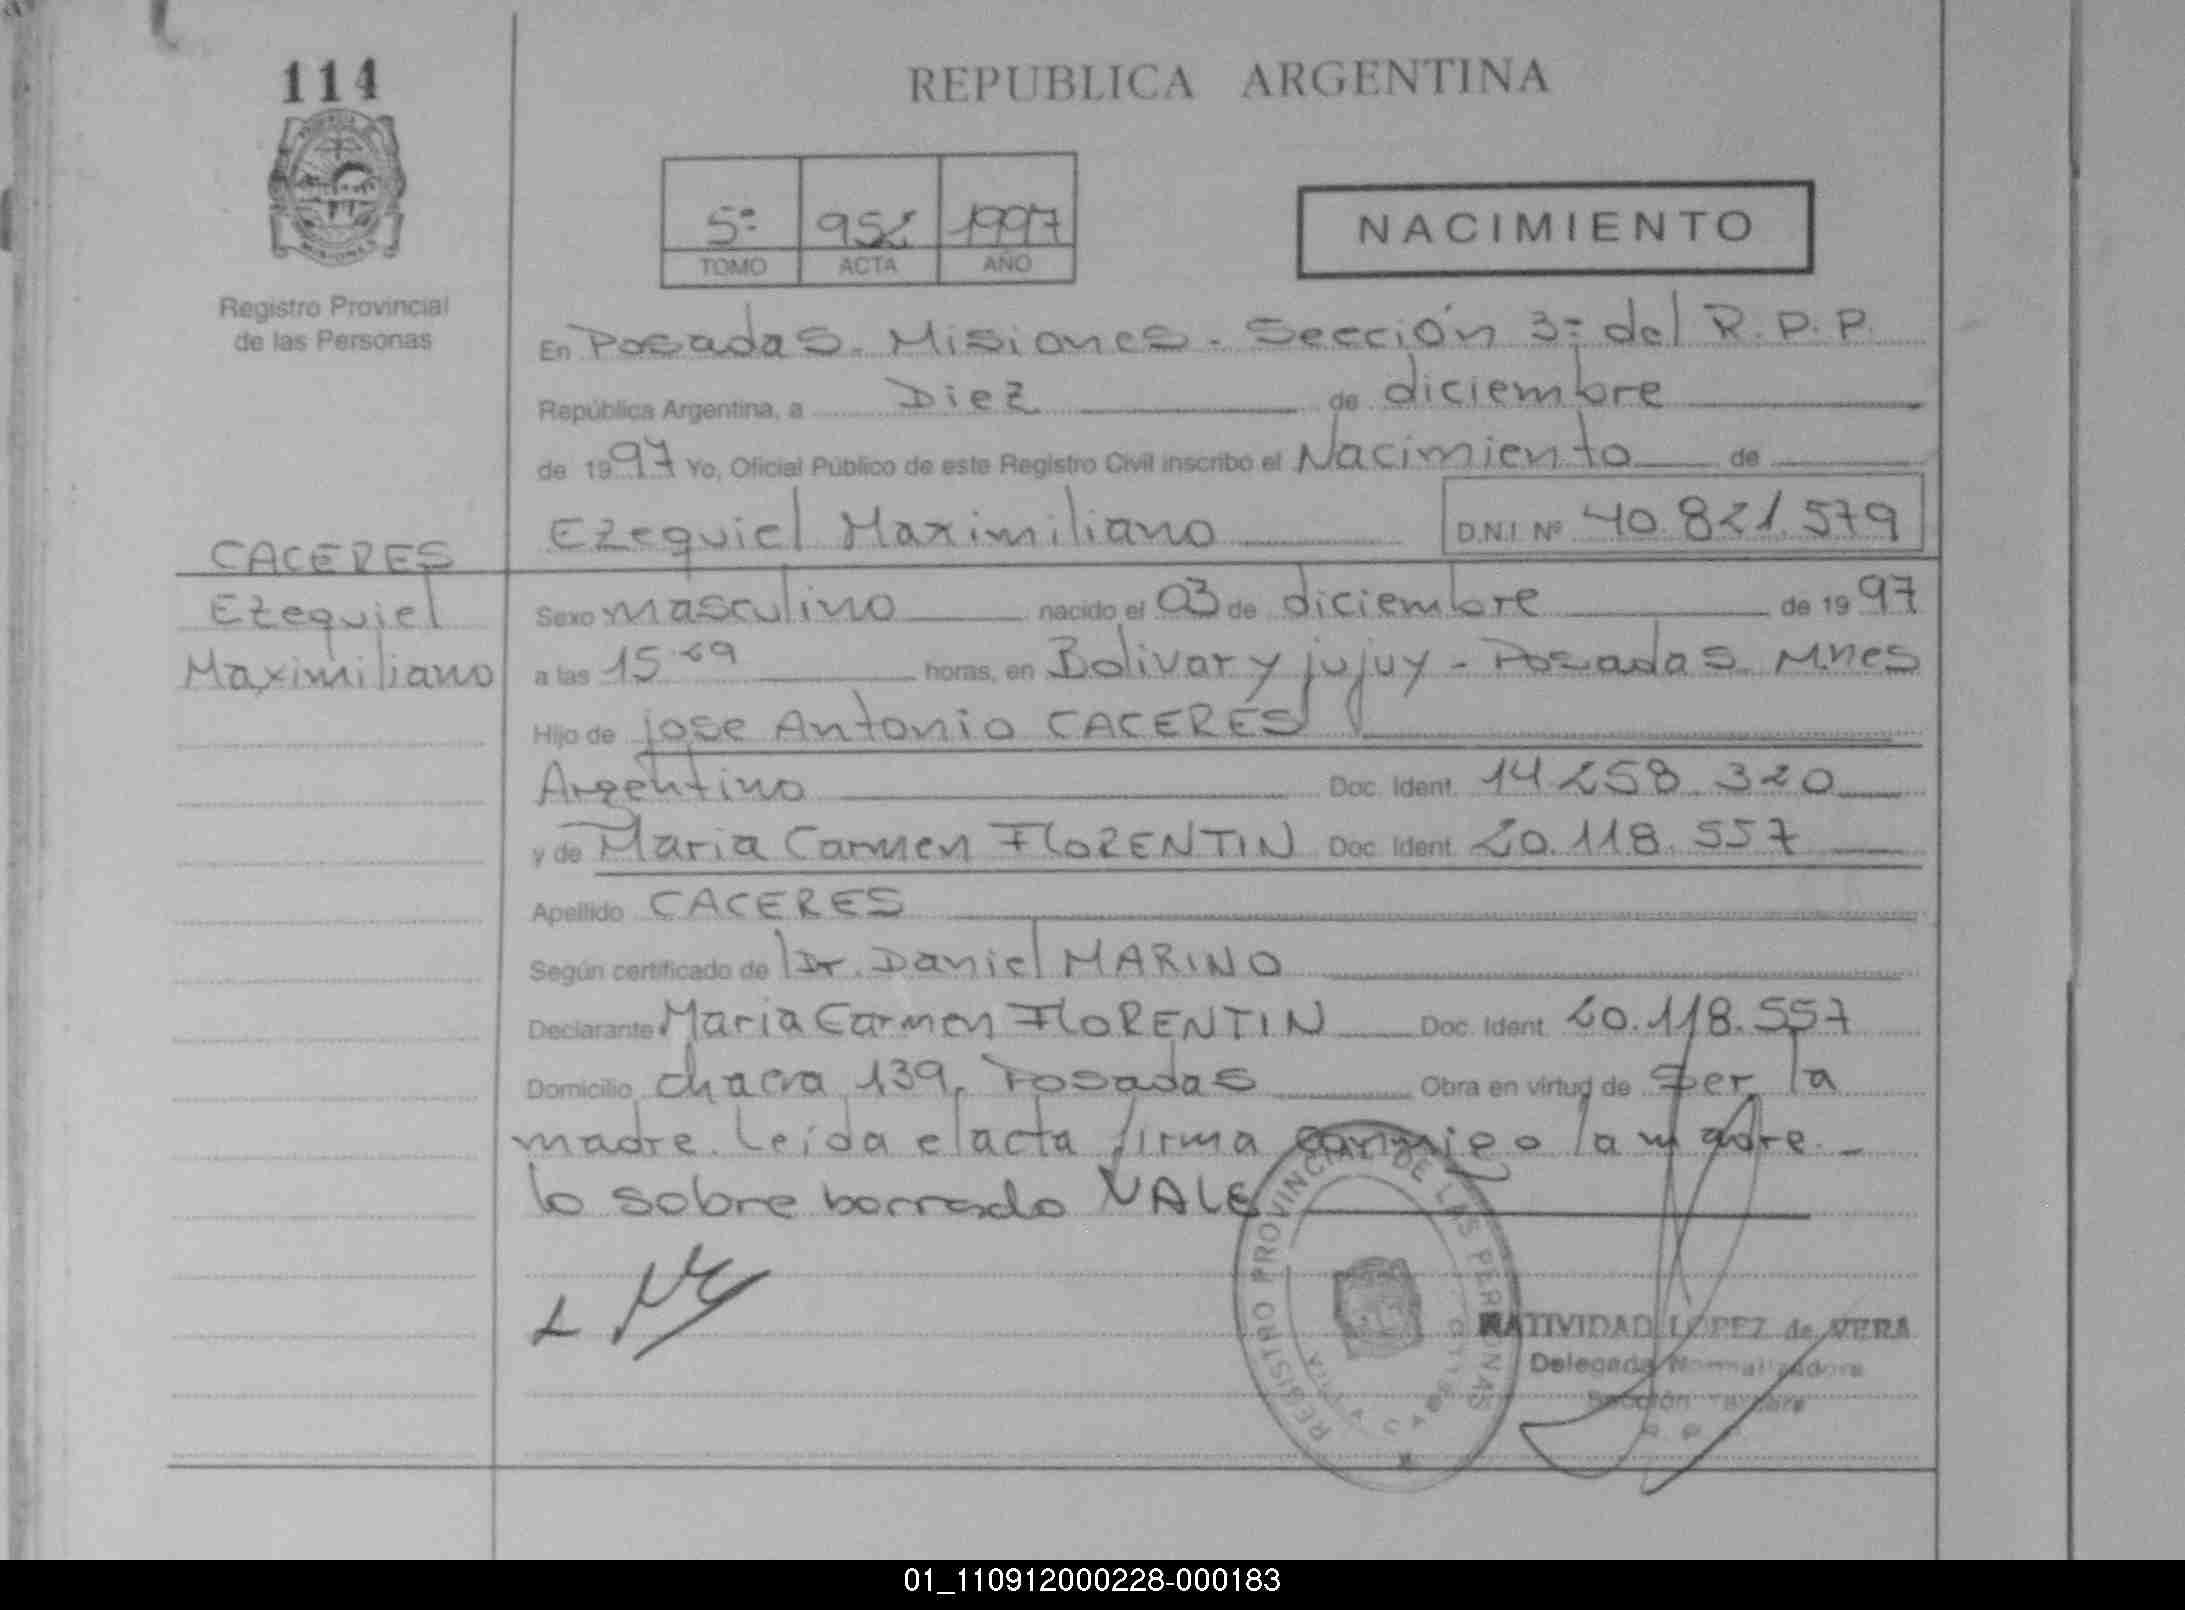 114
REPUBLICA ARGENTINA
5º 952 1997
TOMO ACTA AÑO
NACIMIENTO
Registro Provincial
de las Personas
En Posadas - Misiones - Sección 3º del R.P.P.
República Argentina, a Diez de diciembre
de 1997 Yo, Oficial Público de este Registro Civil inscribo el Nacimiento de
Ezequiel Maximiliano D.N.I. Nº 40.821.579
CACERES
Ezequiel
Maximiliano
Sexo masculino nacido el 03 de diciembre de 1997
a las 15 29 horas, en Bolivar y jujuy - Posadas Mnes
Hijo de jose Antonio CACERES
Argentino Doc. Ident. 14.258.320
y de Maria Carmen FlORENTIN Doc. Ident. 20.118.557
Apellido CACERES
Según certificado de Dr. Daniel MARINO
Declarante Maria Carmen FlORENTIN Doc. Ident. 20.118.557
Domicilio chacra 139, Posadas Obra en virtud de ser la
madre. Leída el acta firma conmigo la madre.-
lo sobre borrado VALE
REGISTRO PROVINCIAL DE LAS PERSONAS
NATIVIDAD LOPEZ de VERA
Delegada Normalizadora
Sección Tercera
01_110912000228-000183